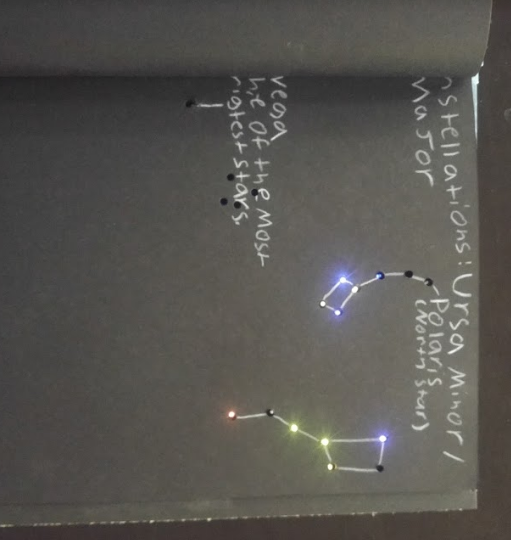 nstellations: Ursa Minor/
Major
Polaris
(North star)
vega
ne of the Most
rigtest stars.